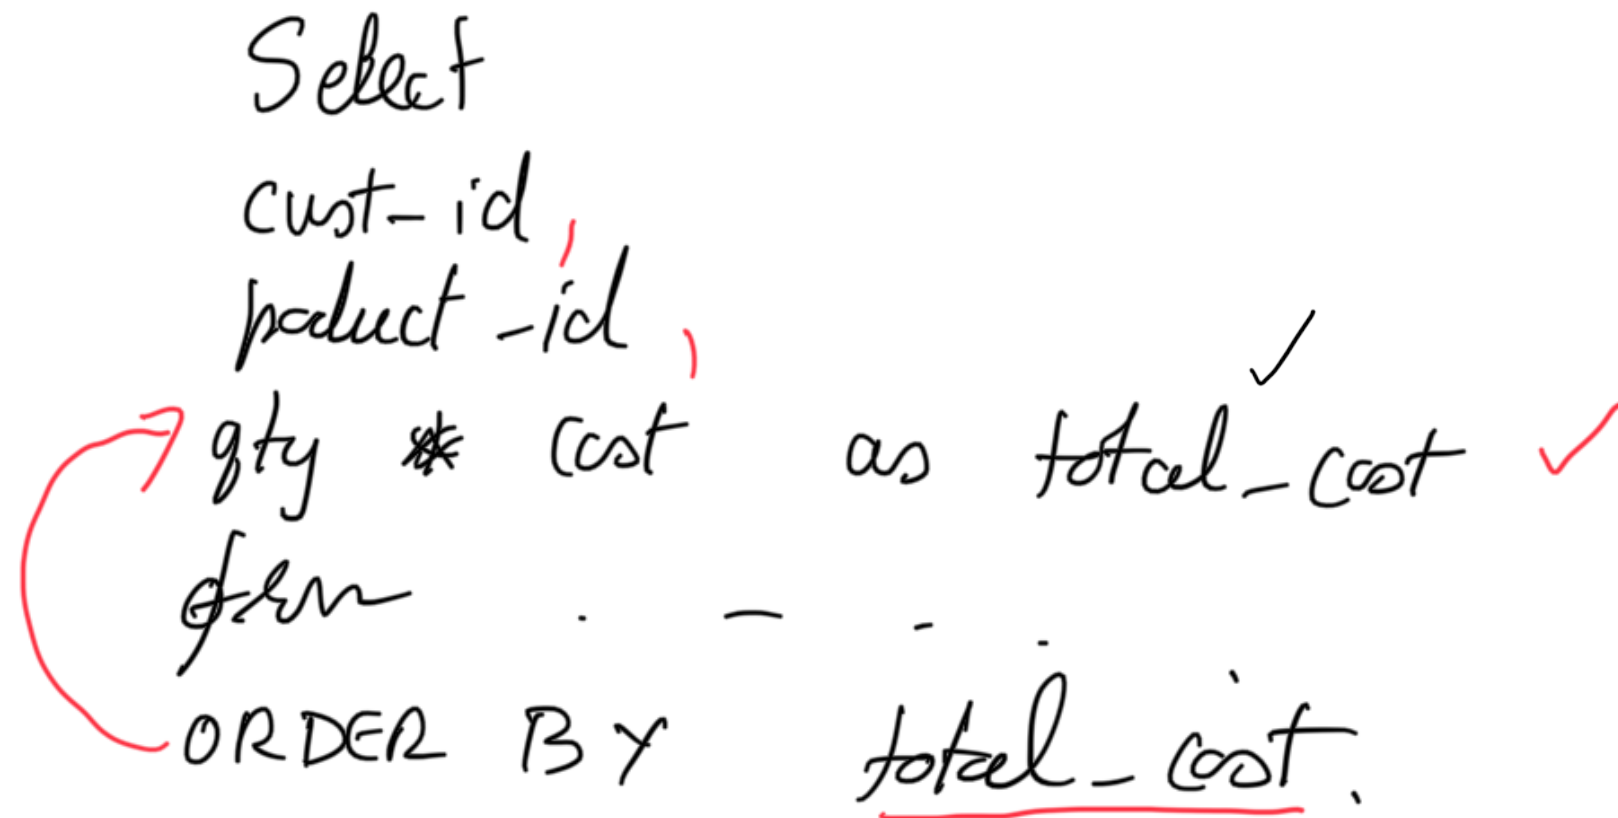 Select
cust_id,
product_id,
qty * cost as total_cost
from . - - -
ORDER BY total_cost.